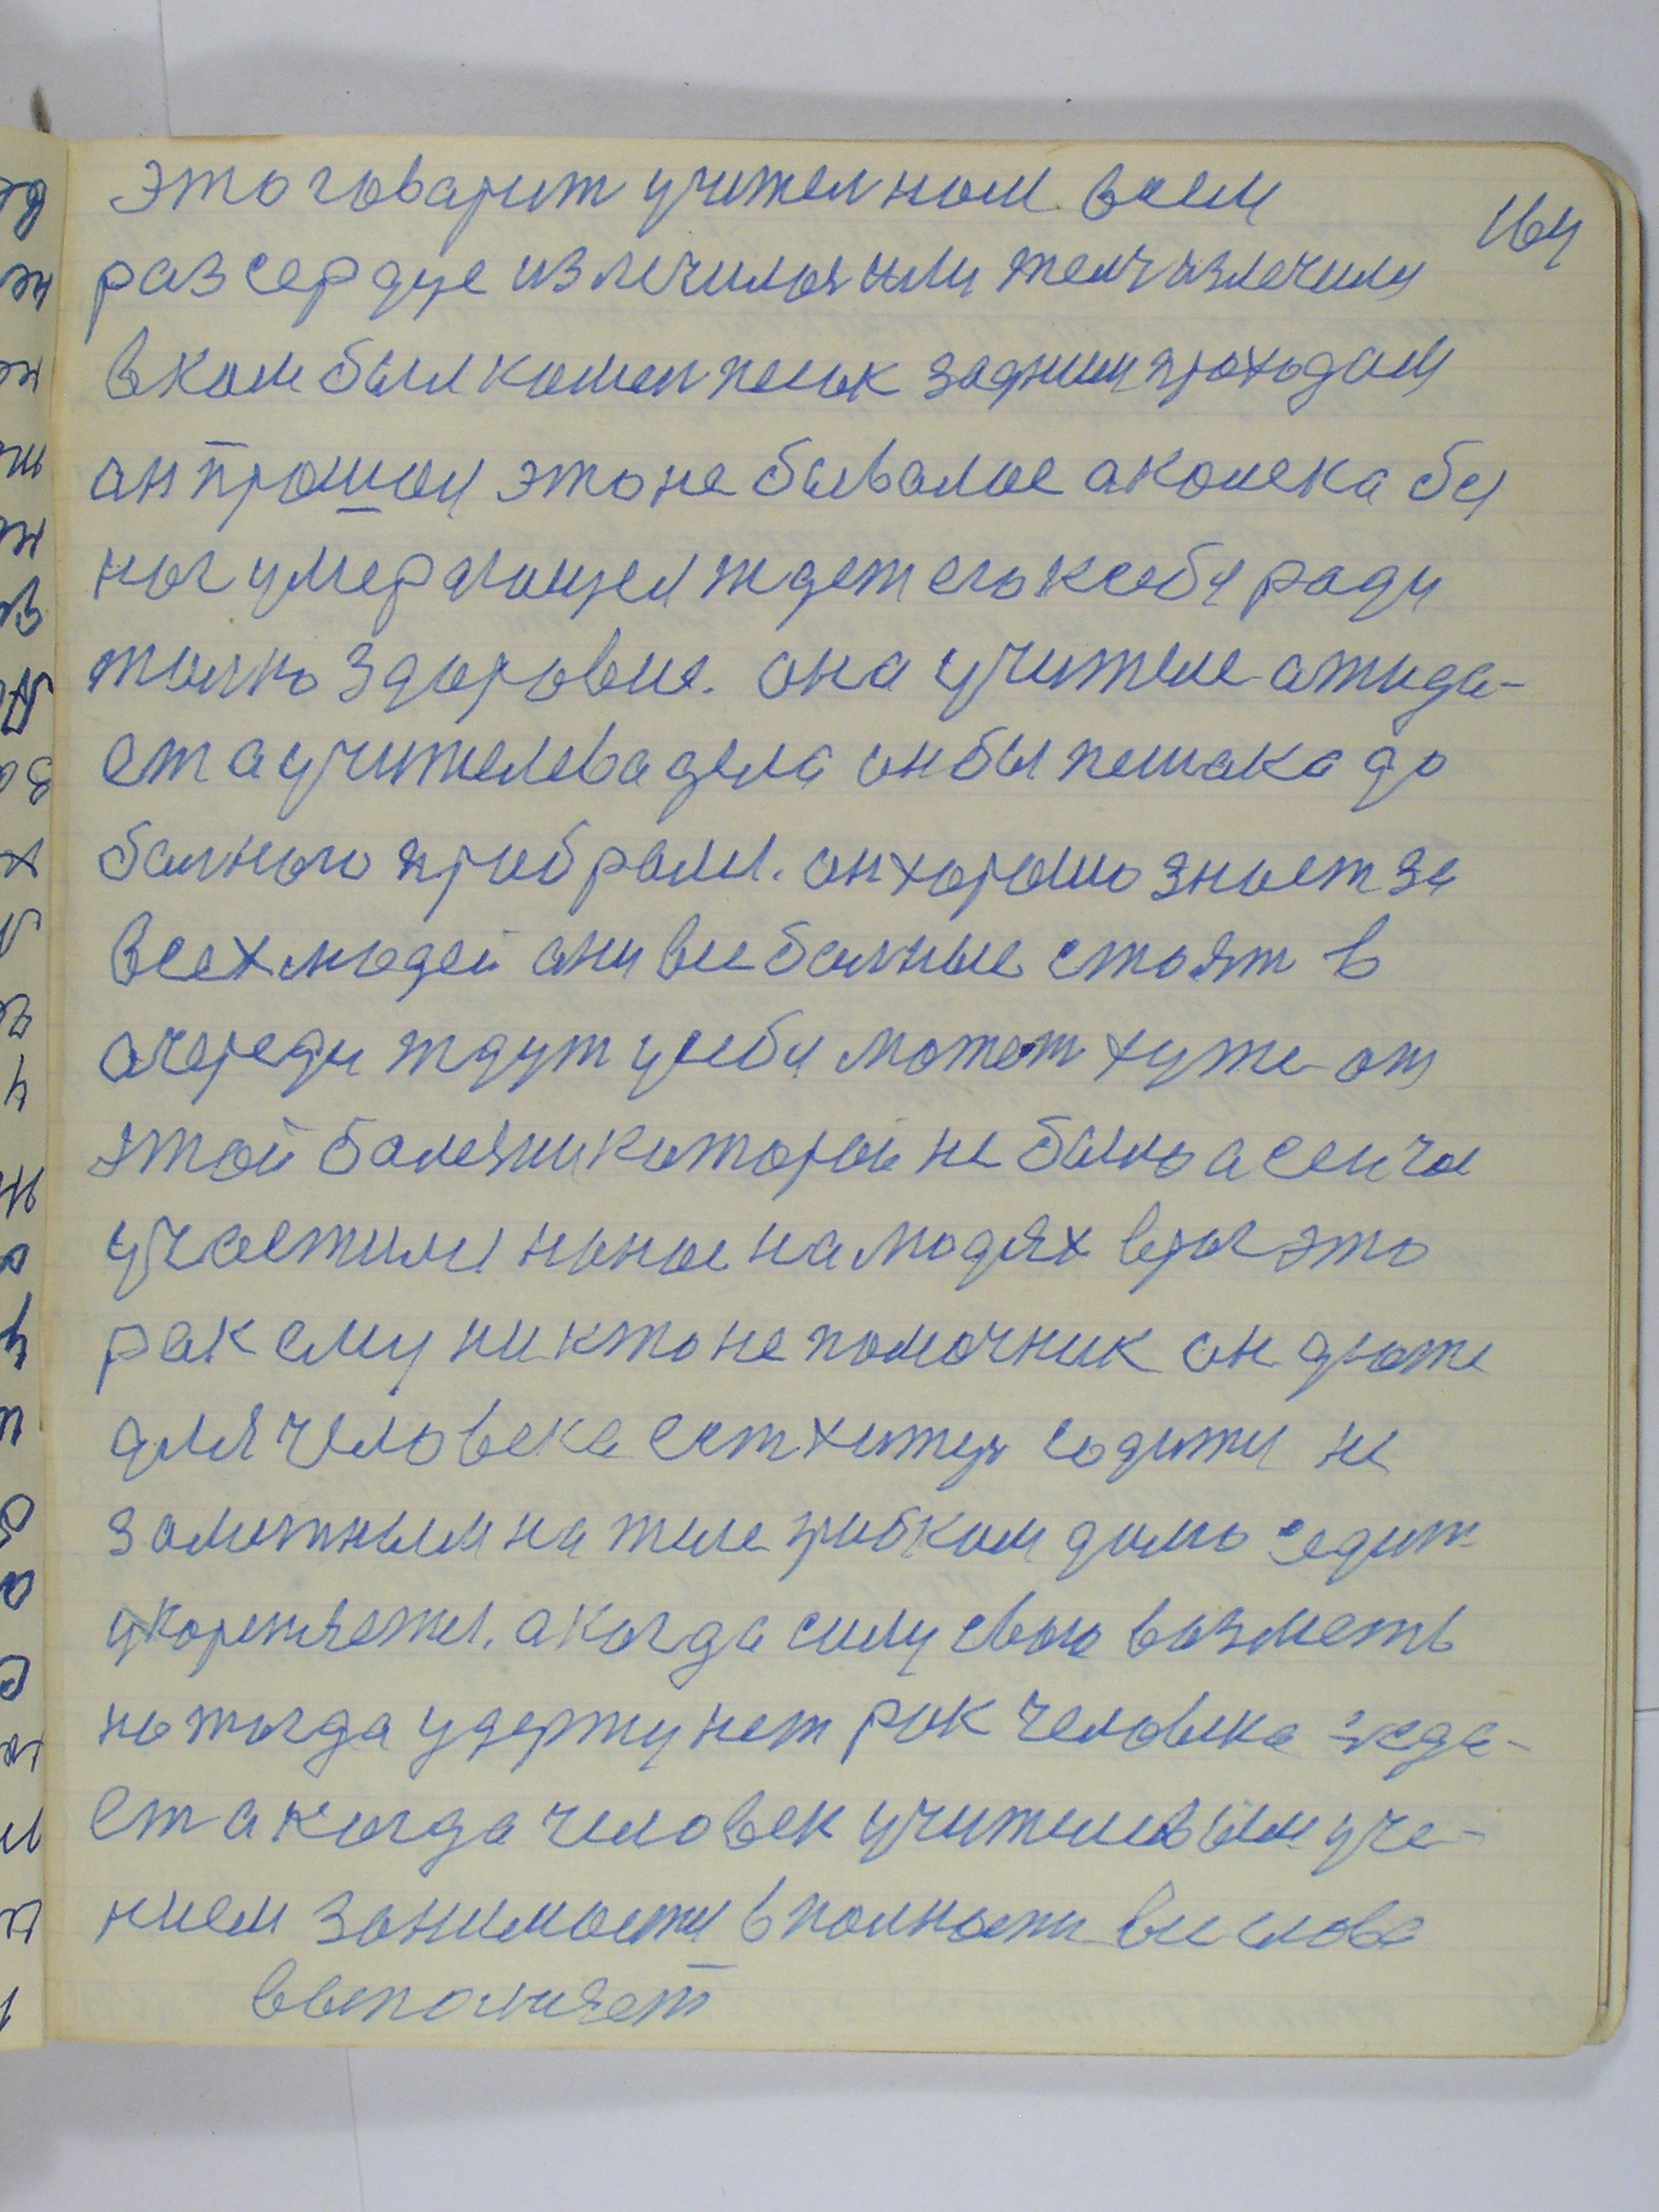 это говарит учител ном всем
164
раз сердце излечилоя или желч излечиля
в ком был комен песок задним проходам
ан прошол это не бывалое а колека бы
ног умерающея ждет его к себя ради
толко здоровие. она учителе ажида-
ет а учителева дела он бы пешака до
балного прибрался. он хорошо знает за
всех людей они все балные стоят в
очереди ждут у себя может хуже от
этой болезни которой не было а сейчас
участился новое на людях враг это
рак ему никто не помочник он даже
для человека ест хитер содится не
заметным на теле грибком дило седит
укореняется. а когда силу свою возмёть
но тогда удержу нет рак человека жда-
ет а когда человек учителевым уче-
нием занимаетя в полности все слова
выполняет